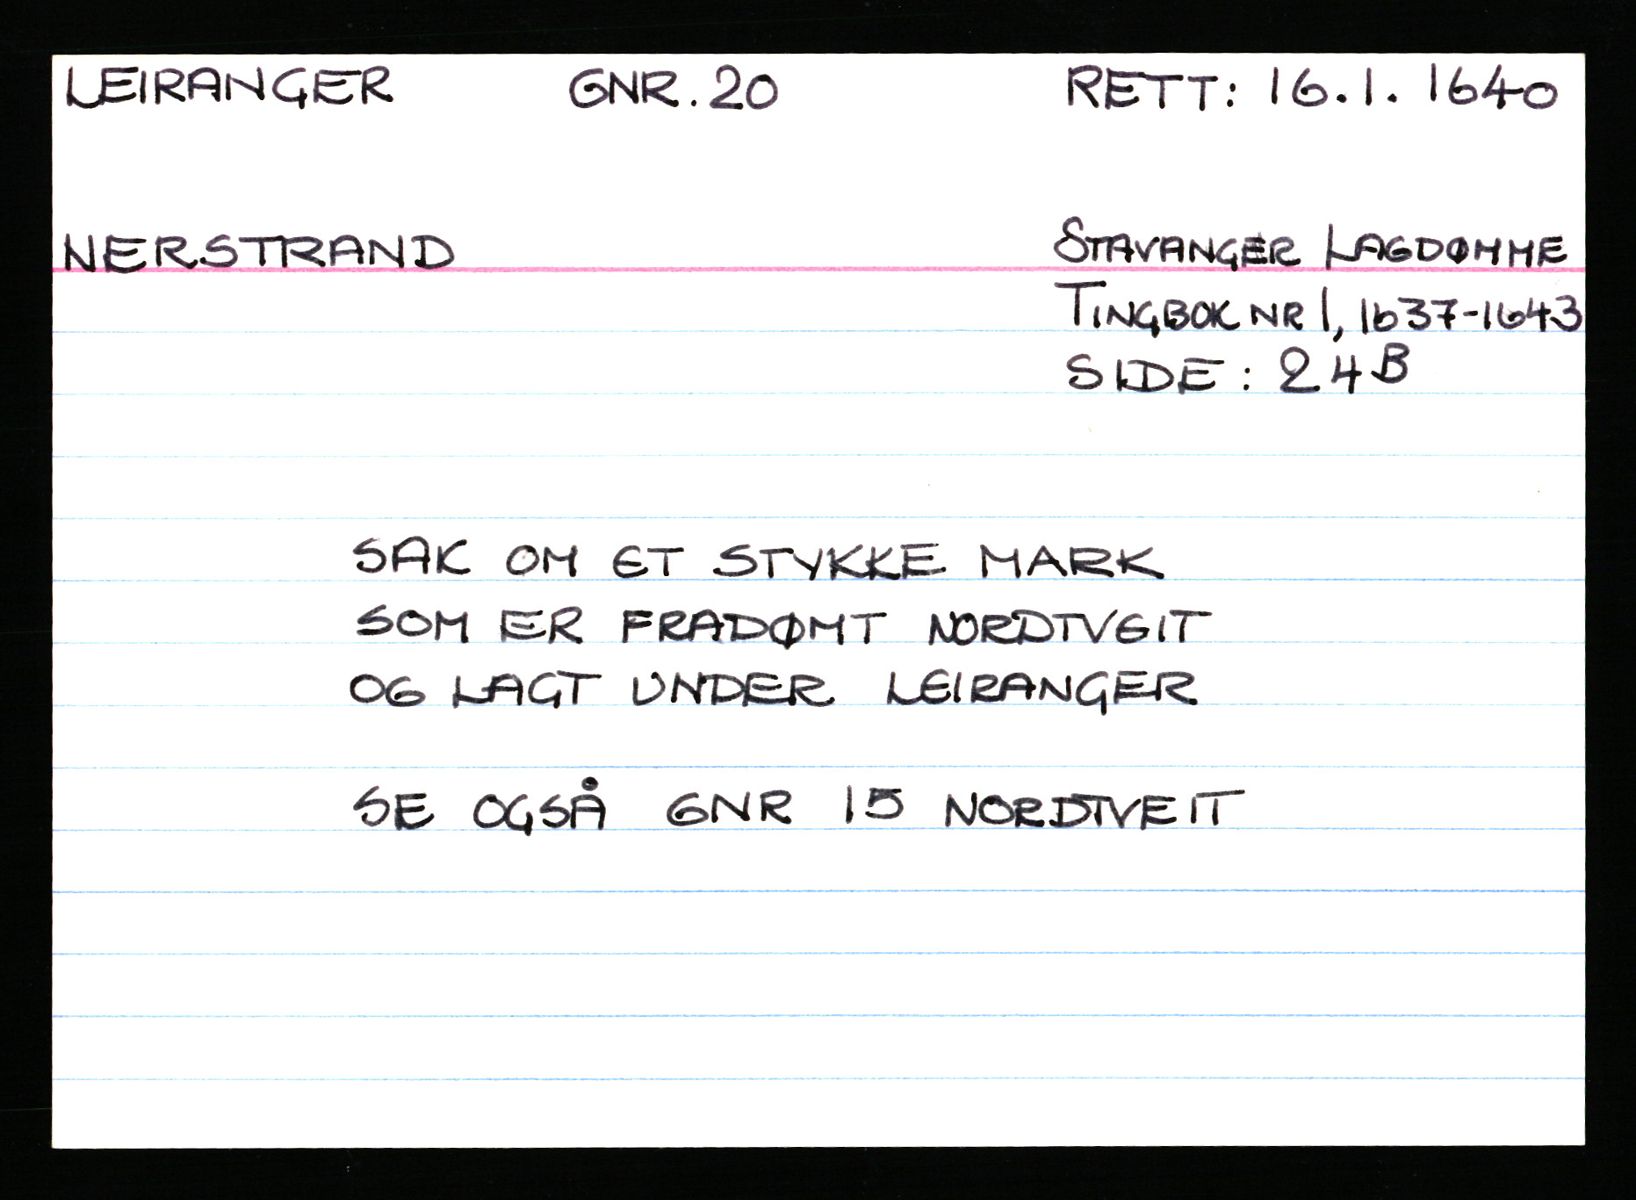 LEIRANGER GNR. 20 RETT: 16.1. 1640
NERSTRAND STAVANGER LAGDØMME
TINGBOK NR 1, 1637-1643
SIDE: 24B
SAK OM ET STYKKE MARK
SOM ER FRADØMT NORDTVEIT
OG LAGT UNDER LEIRANGER
SE OGSÅ GNR 15 NORDTVEIT